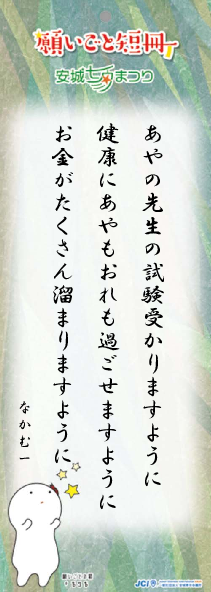 願いごと短冊
安城七夕まつり
あやの先生の試験受かりますように
健康にあやもおれも過ごせますように
お金がたくさん溜まりますように
なかむー
JCI